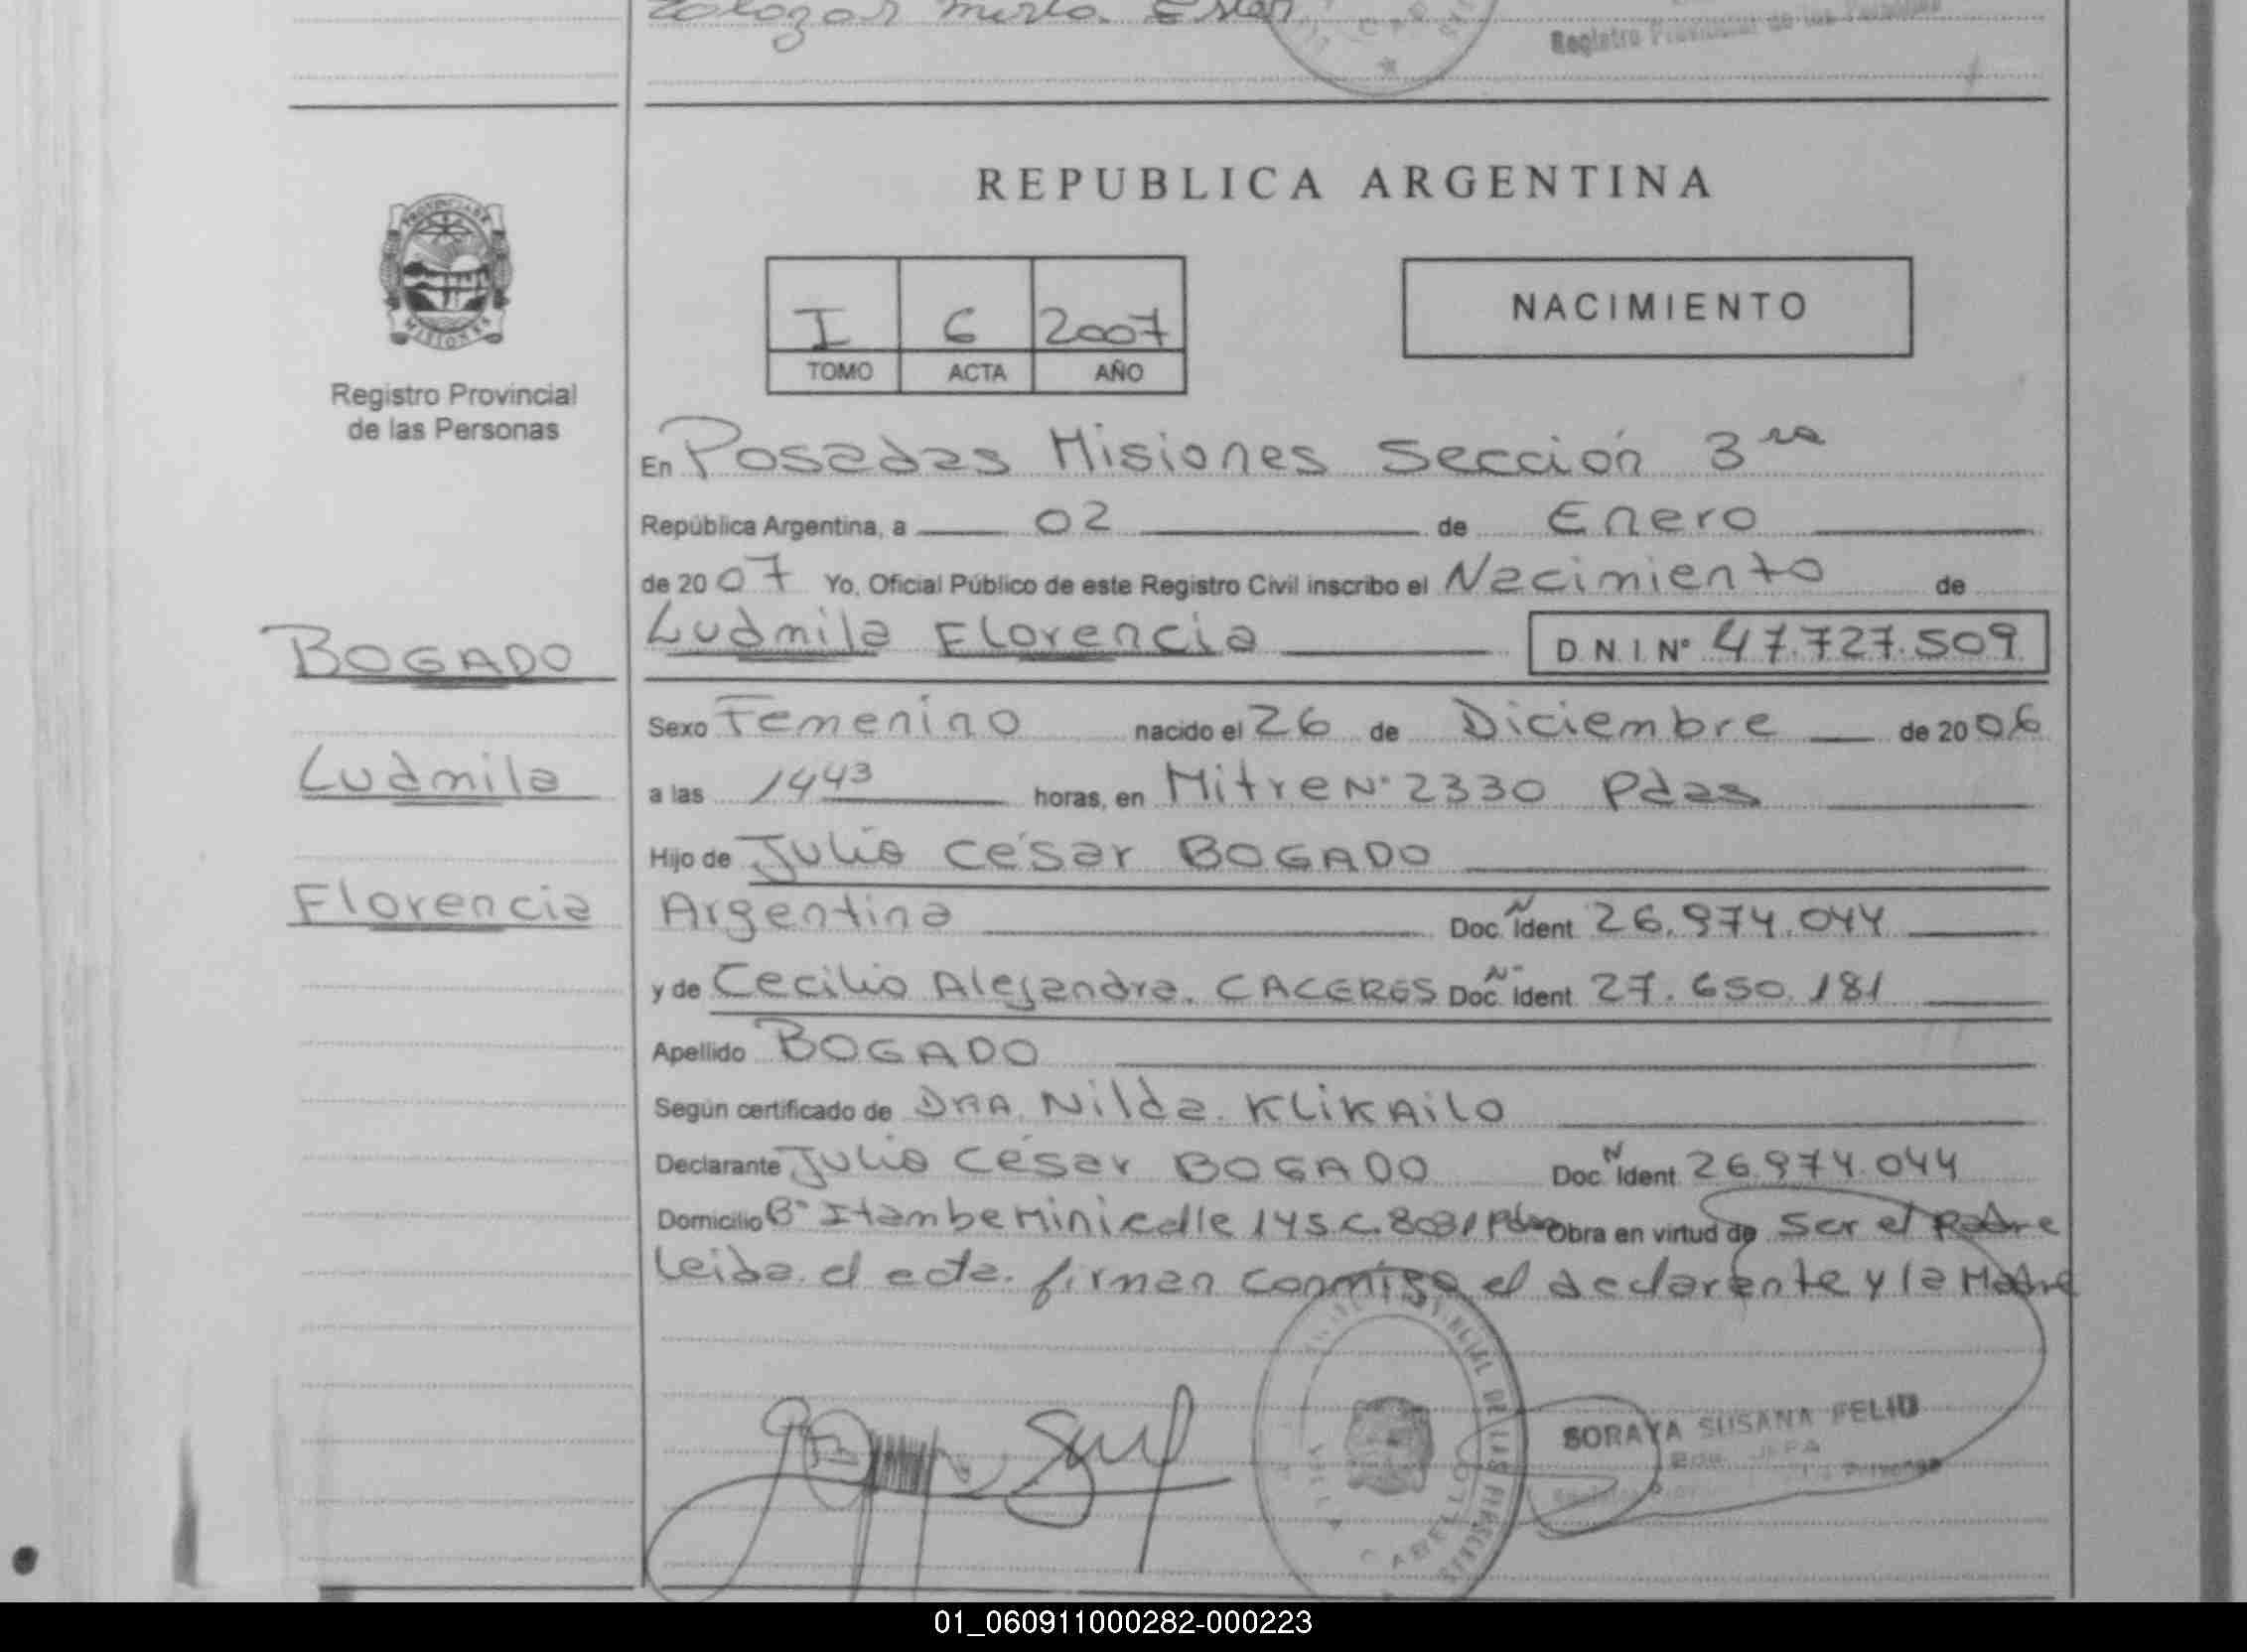 Salazar Mirta Ester
Registro Provincial de las Personas
REPUBLICA ARGENTINA
PROVINCIA DE
MISIONES
Registro Provincial
de las Personas
I 6 2007
TOMO ACTA AÑO
NACIMIENTO
En Posadas Misiones Sección 3ra
República Argentina, a 02 de Enero
de 2007 Yo, Oficial Público de este Registro Civil inscribo el Nacimiento de
BOGADO
Ludmila Florencia
D N I Nº 47.727.509
Sexo Femenino nacido el 26 de Diciembre de 2006
Ludmila
a las 1443 horas, en Mitre Nº 2330 Pdas
Hijo de Julio César BOGADO
Florencia
Argentina Doc. N Ident 26.974.044
y de Cecilia Alejandra. CACERES Doc. Nº Ident 27.650.181
Apellido BOGADO
Según certificado de DRA. Nilda. KLIKAILO
Declarante Julio César BOGADO Doc. N Ident 26.974.044
Domicilio Bº Itambe Mini calle 145 C. 8031 Pdas Obra en virtud de Ser el Padre
Leida el acta. firman conmigo el declarante y la Madre
PROVINCIAL DE LAS PERSONAS
VILLA CABELLO
SORAYA SUSANA FELIU
01_060911000282-000223